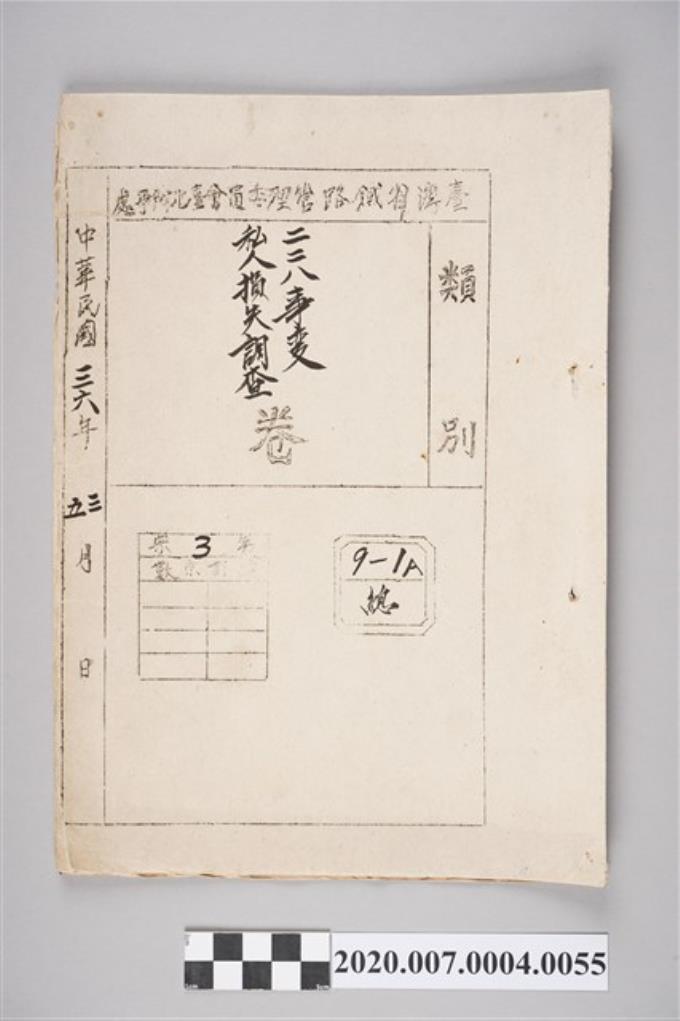 臺灣省鐵路管理委員會臺北辦事處
類別
二二八事變
私人損失調查卷
中華民國三六年三五月日
第3案
9-1A
總
2020.007.0004.0055